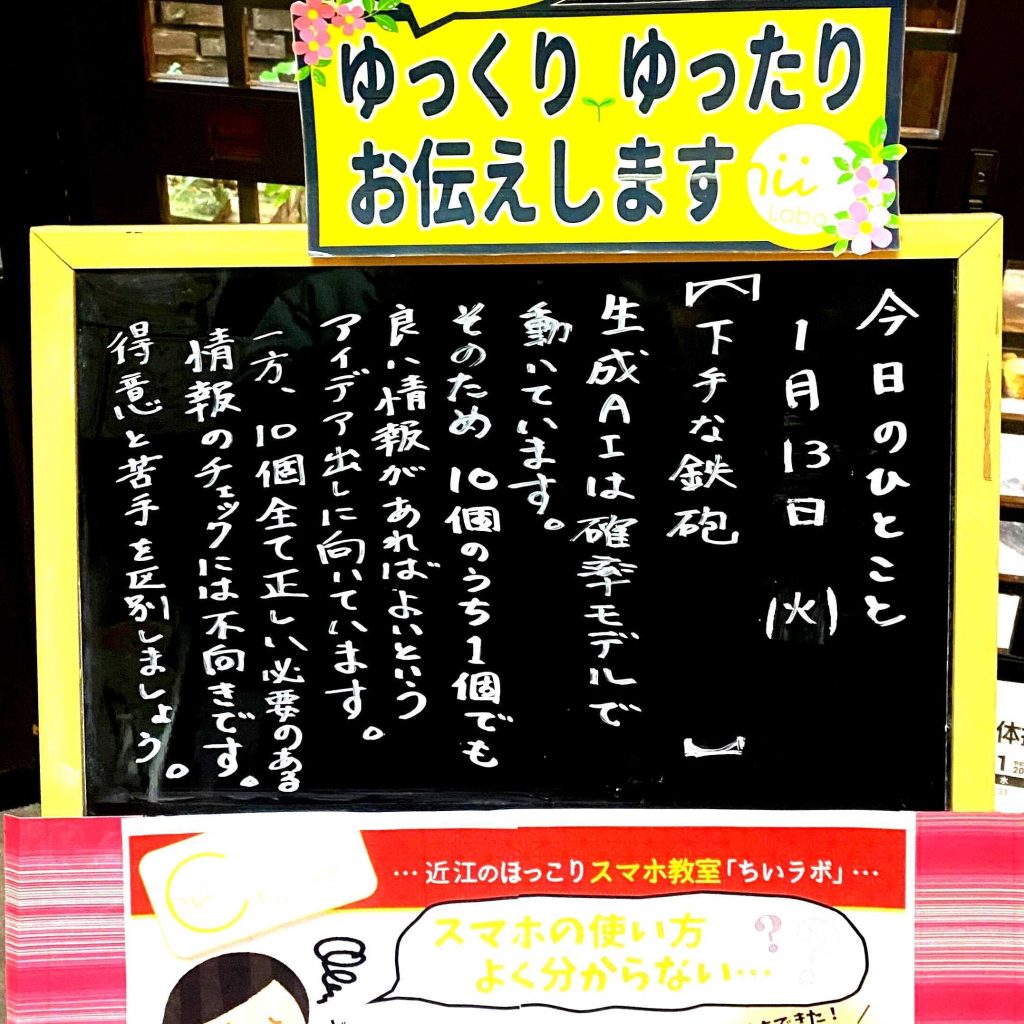 ゆっくり ゆったり
お伝えします
Labo
今日のひとこと
1月13日(火)
【下手な鉄砲】
生成AIは確率モデルで
動いています。
そのため 10個のうち1個でも
良い情報があればよいという
アイデア出しに向いています。
一方、10個全て正しい必要のある
情報のチェックには不向きです。
得意と苦手を区別しましょう。
…近江のほっこりスマホ教室「ちいラボ」…
スマホの使い方
よく分からない…
できた！